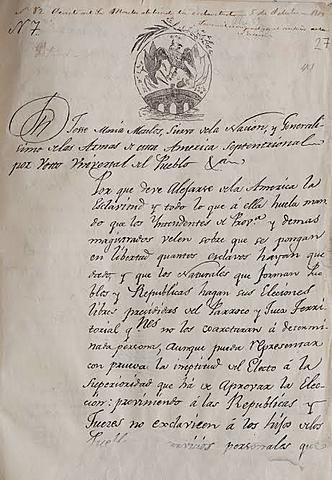 N. 7.
27
Dn. Jose María Morelos, Siervo de la Nacion, y Generali-
simo de las Armas de esta America Septentrional
por Voto Universal del Pueblo &a.
Por que deve alejarse de la America la
Esclavitud y todo lo que á ella huela man-
do que los Yntendentes de Prova. y demas
magistrados velen sobre que se pongan
en livertad quantos esclavos hayan que-
dado, y que los Naturales que forman Pue
blos y Republicas hagan sus Elecciones
libres presididas del Parroco y Juez Terri-
torial qnes no los coartaran á determi-
nada persona, aunque pueda representar
con prueva la ineptitud del Electo á la
Superioridad que há de aprovar la Elec-
cion: previniendo á las Republicas y
Jueces no esclavicen á los hijos de los
Puebl servicios personales que